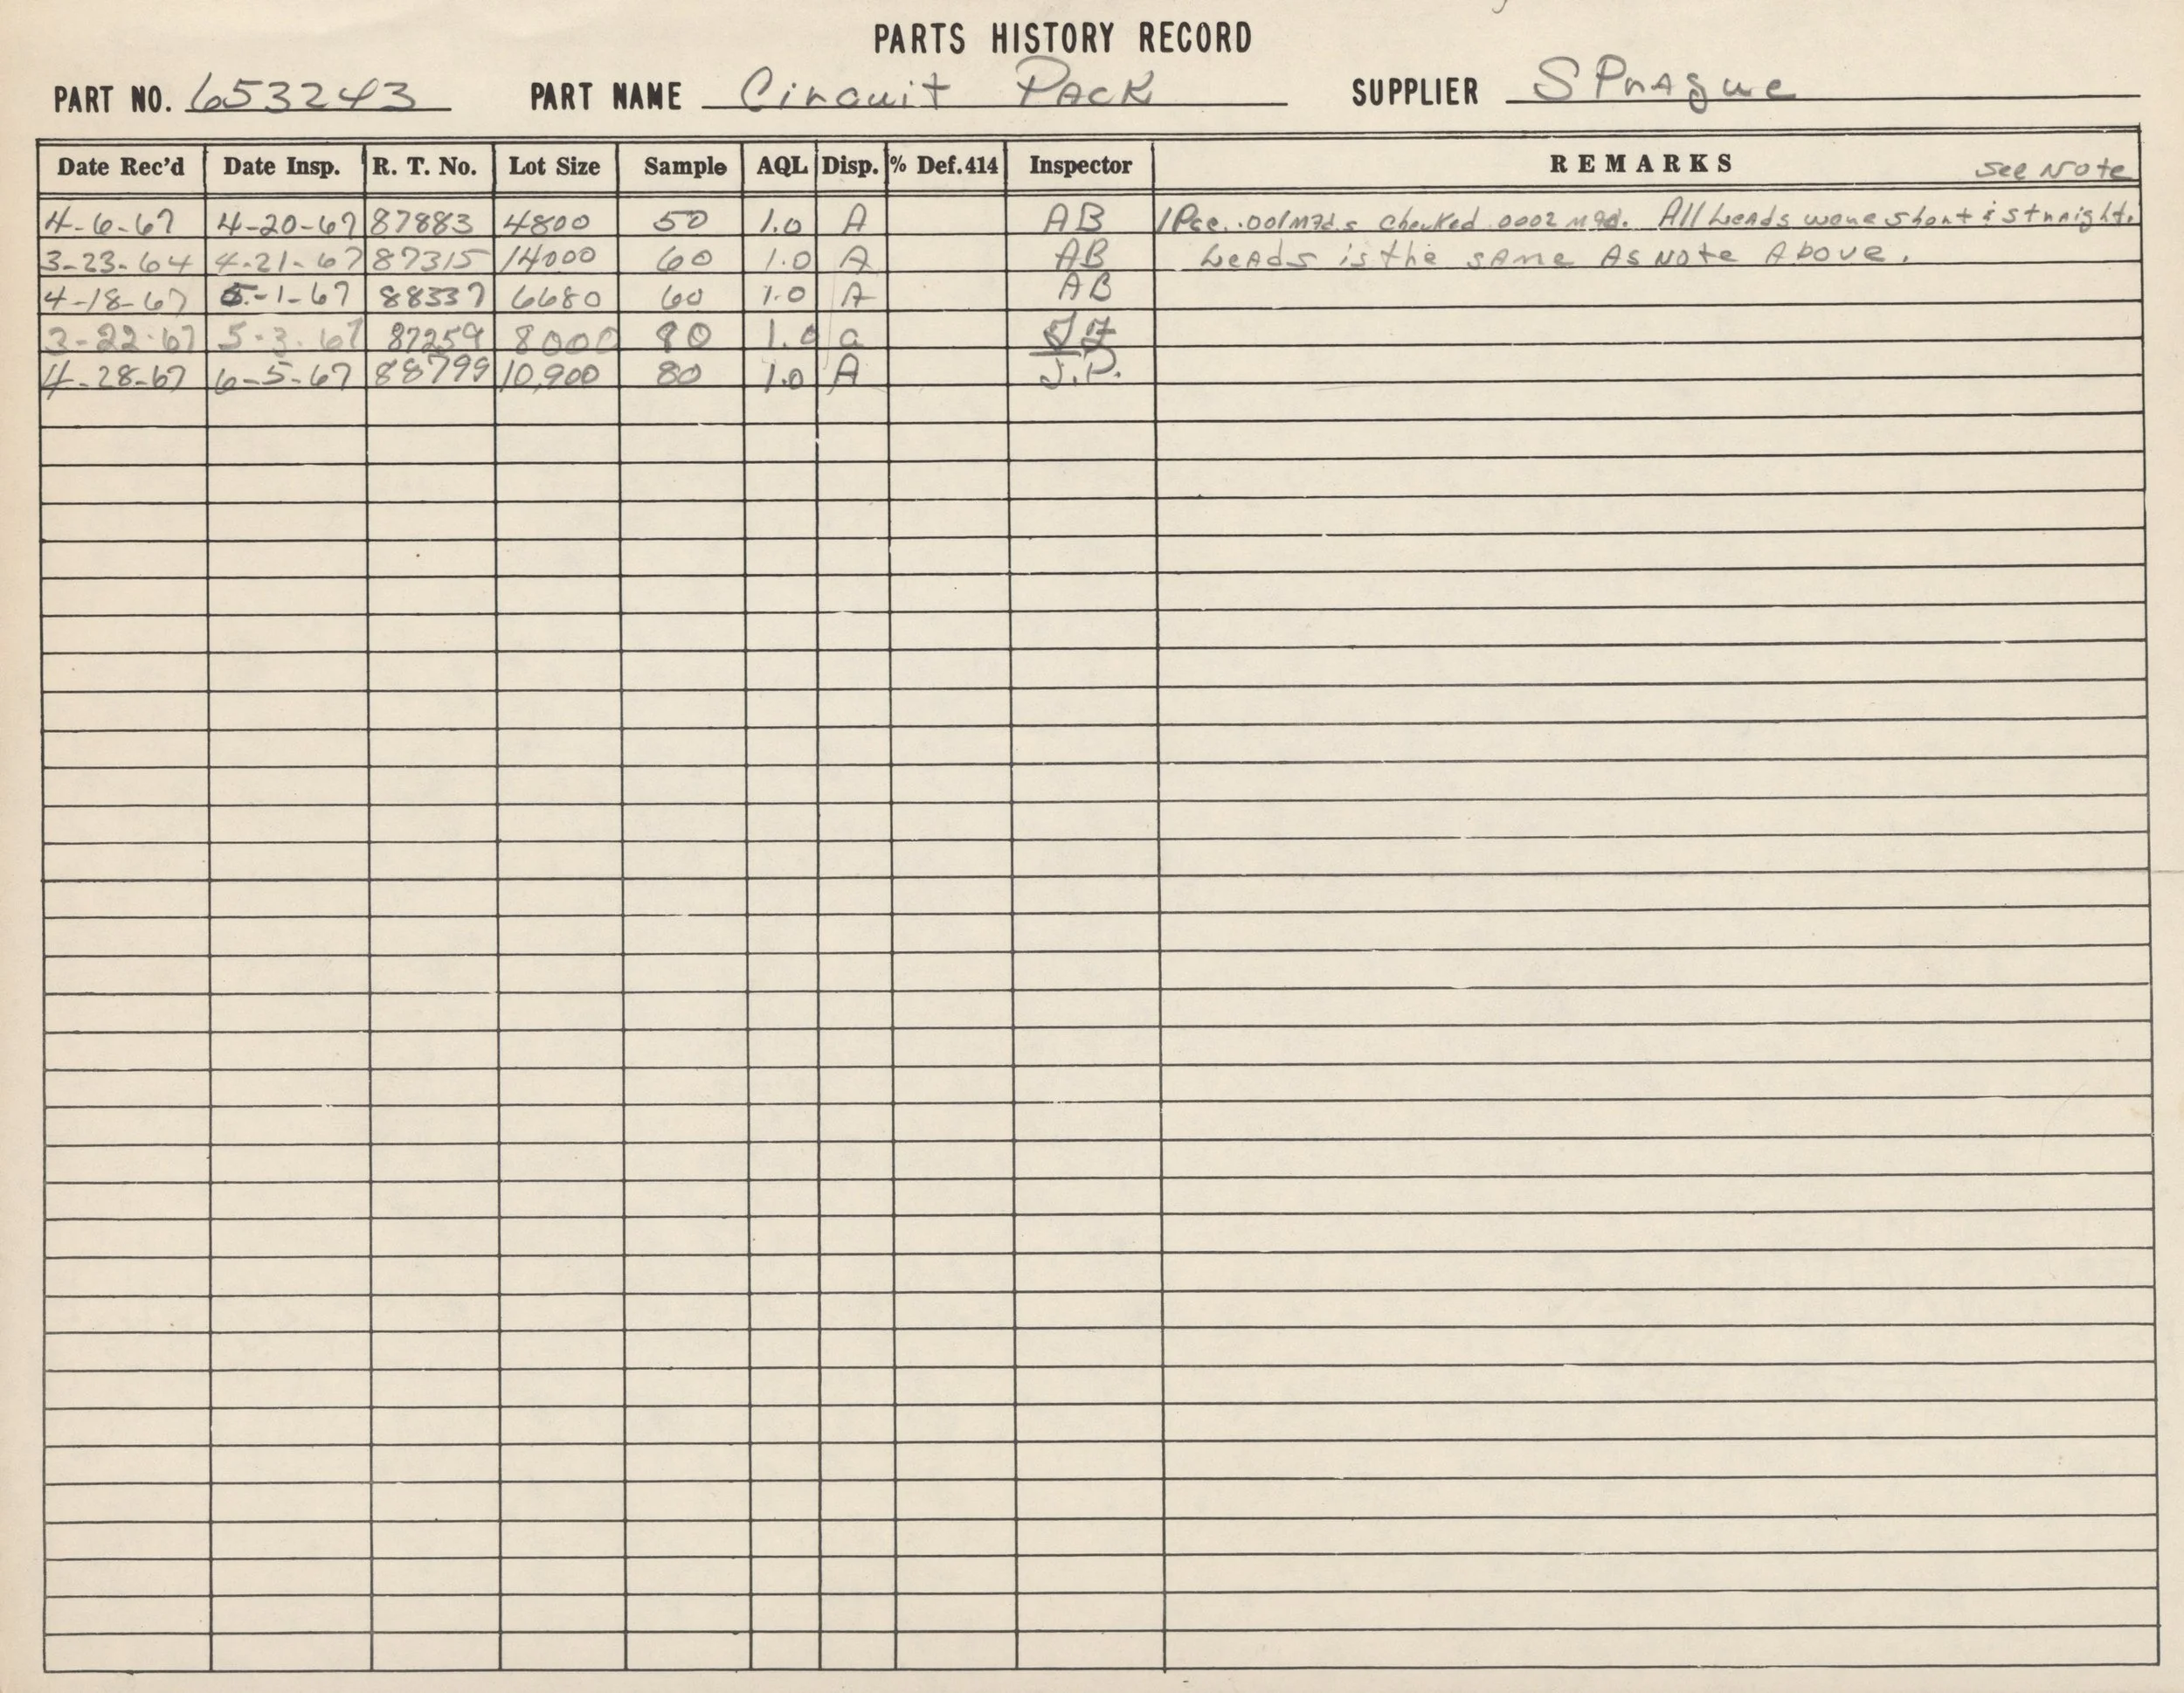 PARTS HISTORY RECORD
PART NO. 653243 PART NAME Circuit Pack SUPPLIER Sprague
Date Rec'd Date Insp. R. T. No. Lot Size Sample AQL Disp. % Def. 414 Inspector REMARKS See Note
4-6-67 4-20-67 87883 4800 50 1.0 A AB 1 Pce. .001 Mfd.s checked .0002 mfd. All Leads were short & straight.
3-23-64 4-21-67 87315 14000 60 1.0 A AB Leads is the same as note above.
4-18-67 5-1-67 88337 6680 60 1.0 A AB
3-22-67 5-3-67 87259 8000 80 1.0 a
4-28-67 6-5-67 88799 10,900 80 1.0 A J.P.